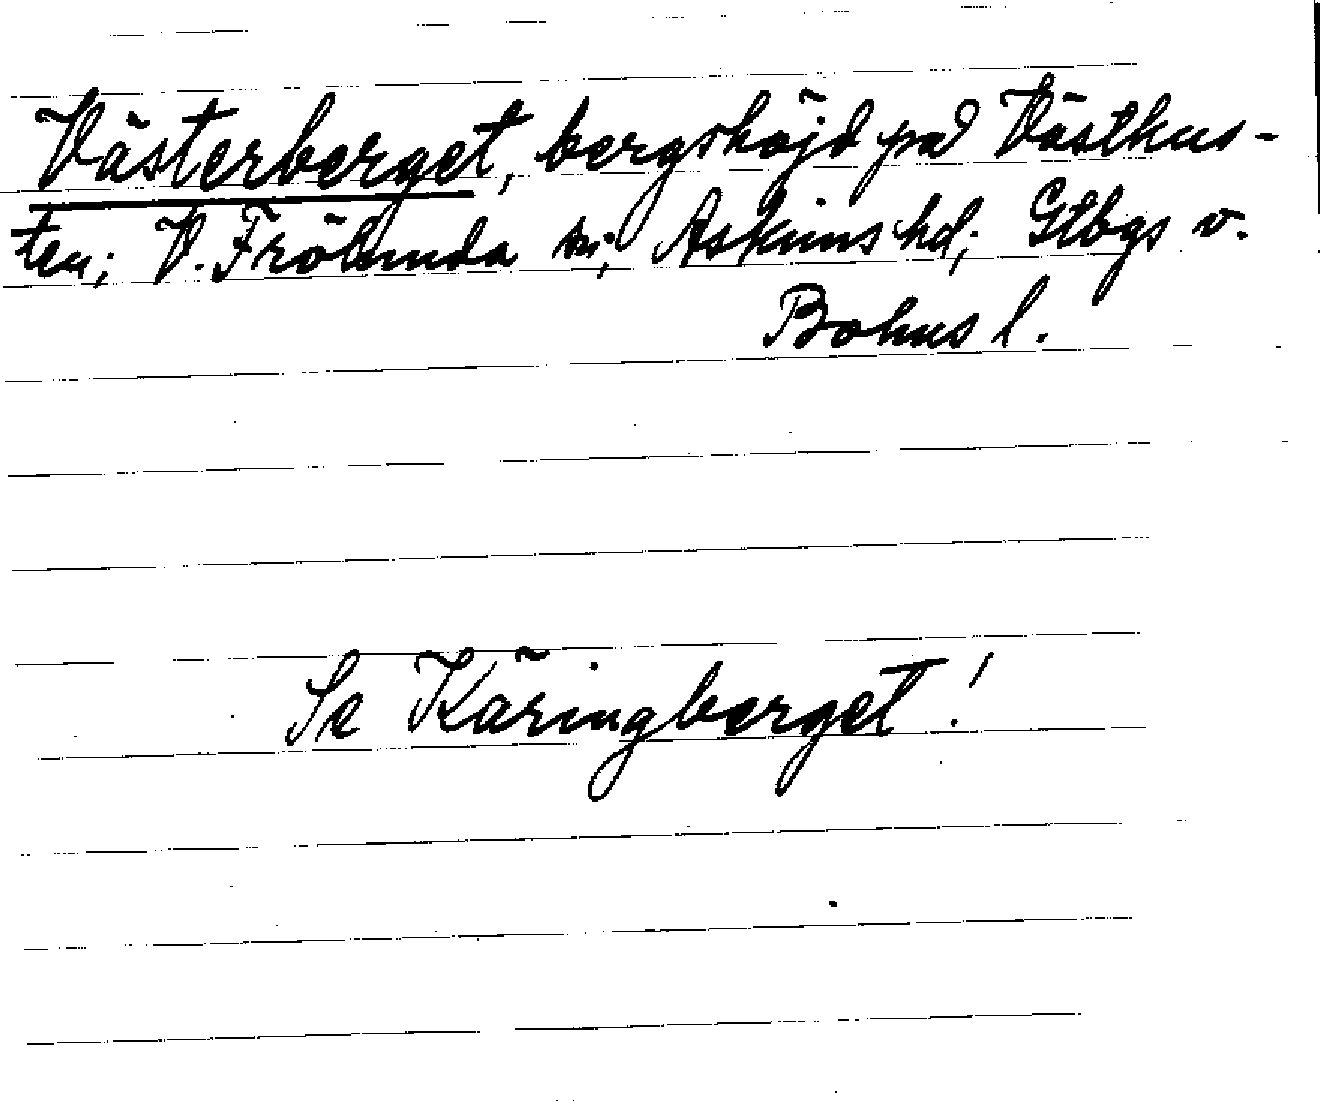 Västerberget, bergshöjd på Västkus-
ten; V. Frölunda sn; Askims hd; Gtbgs v.
Bohus l.
Se Käringberget!